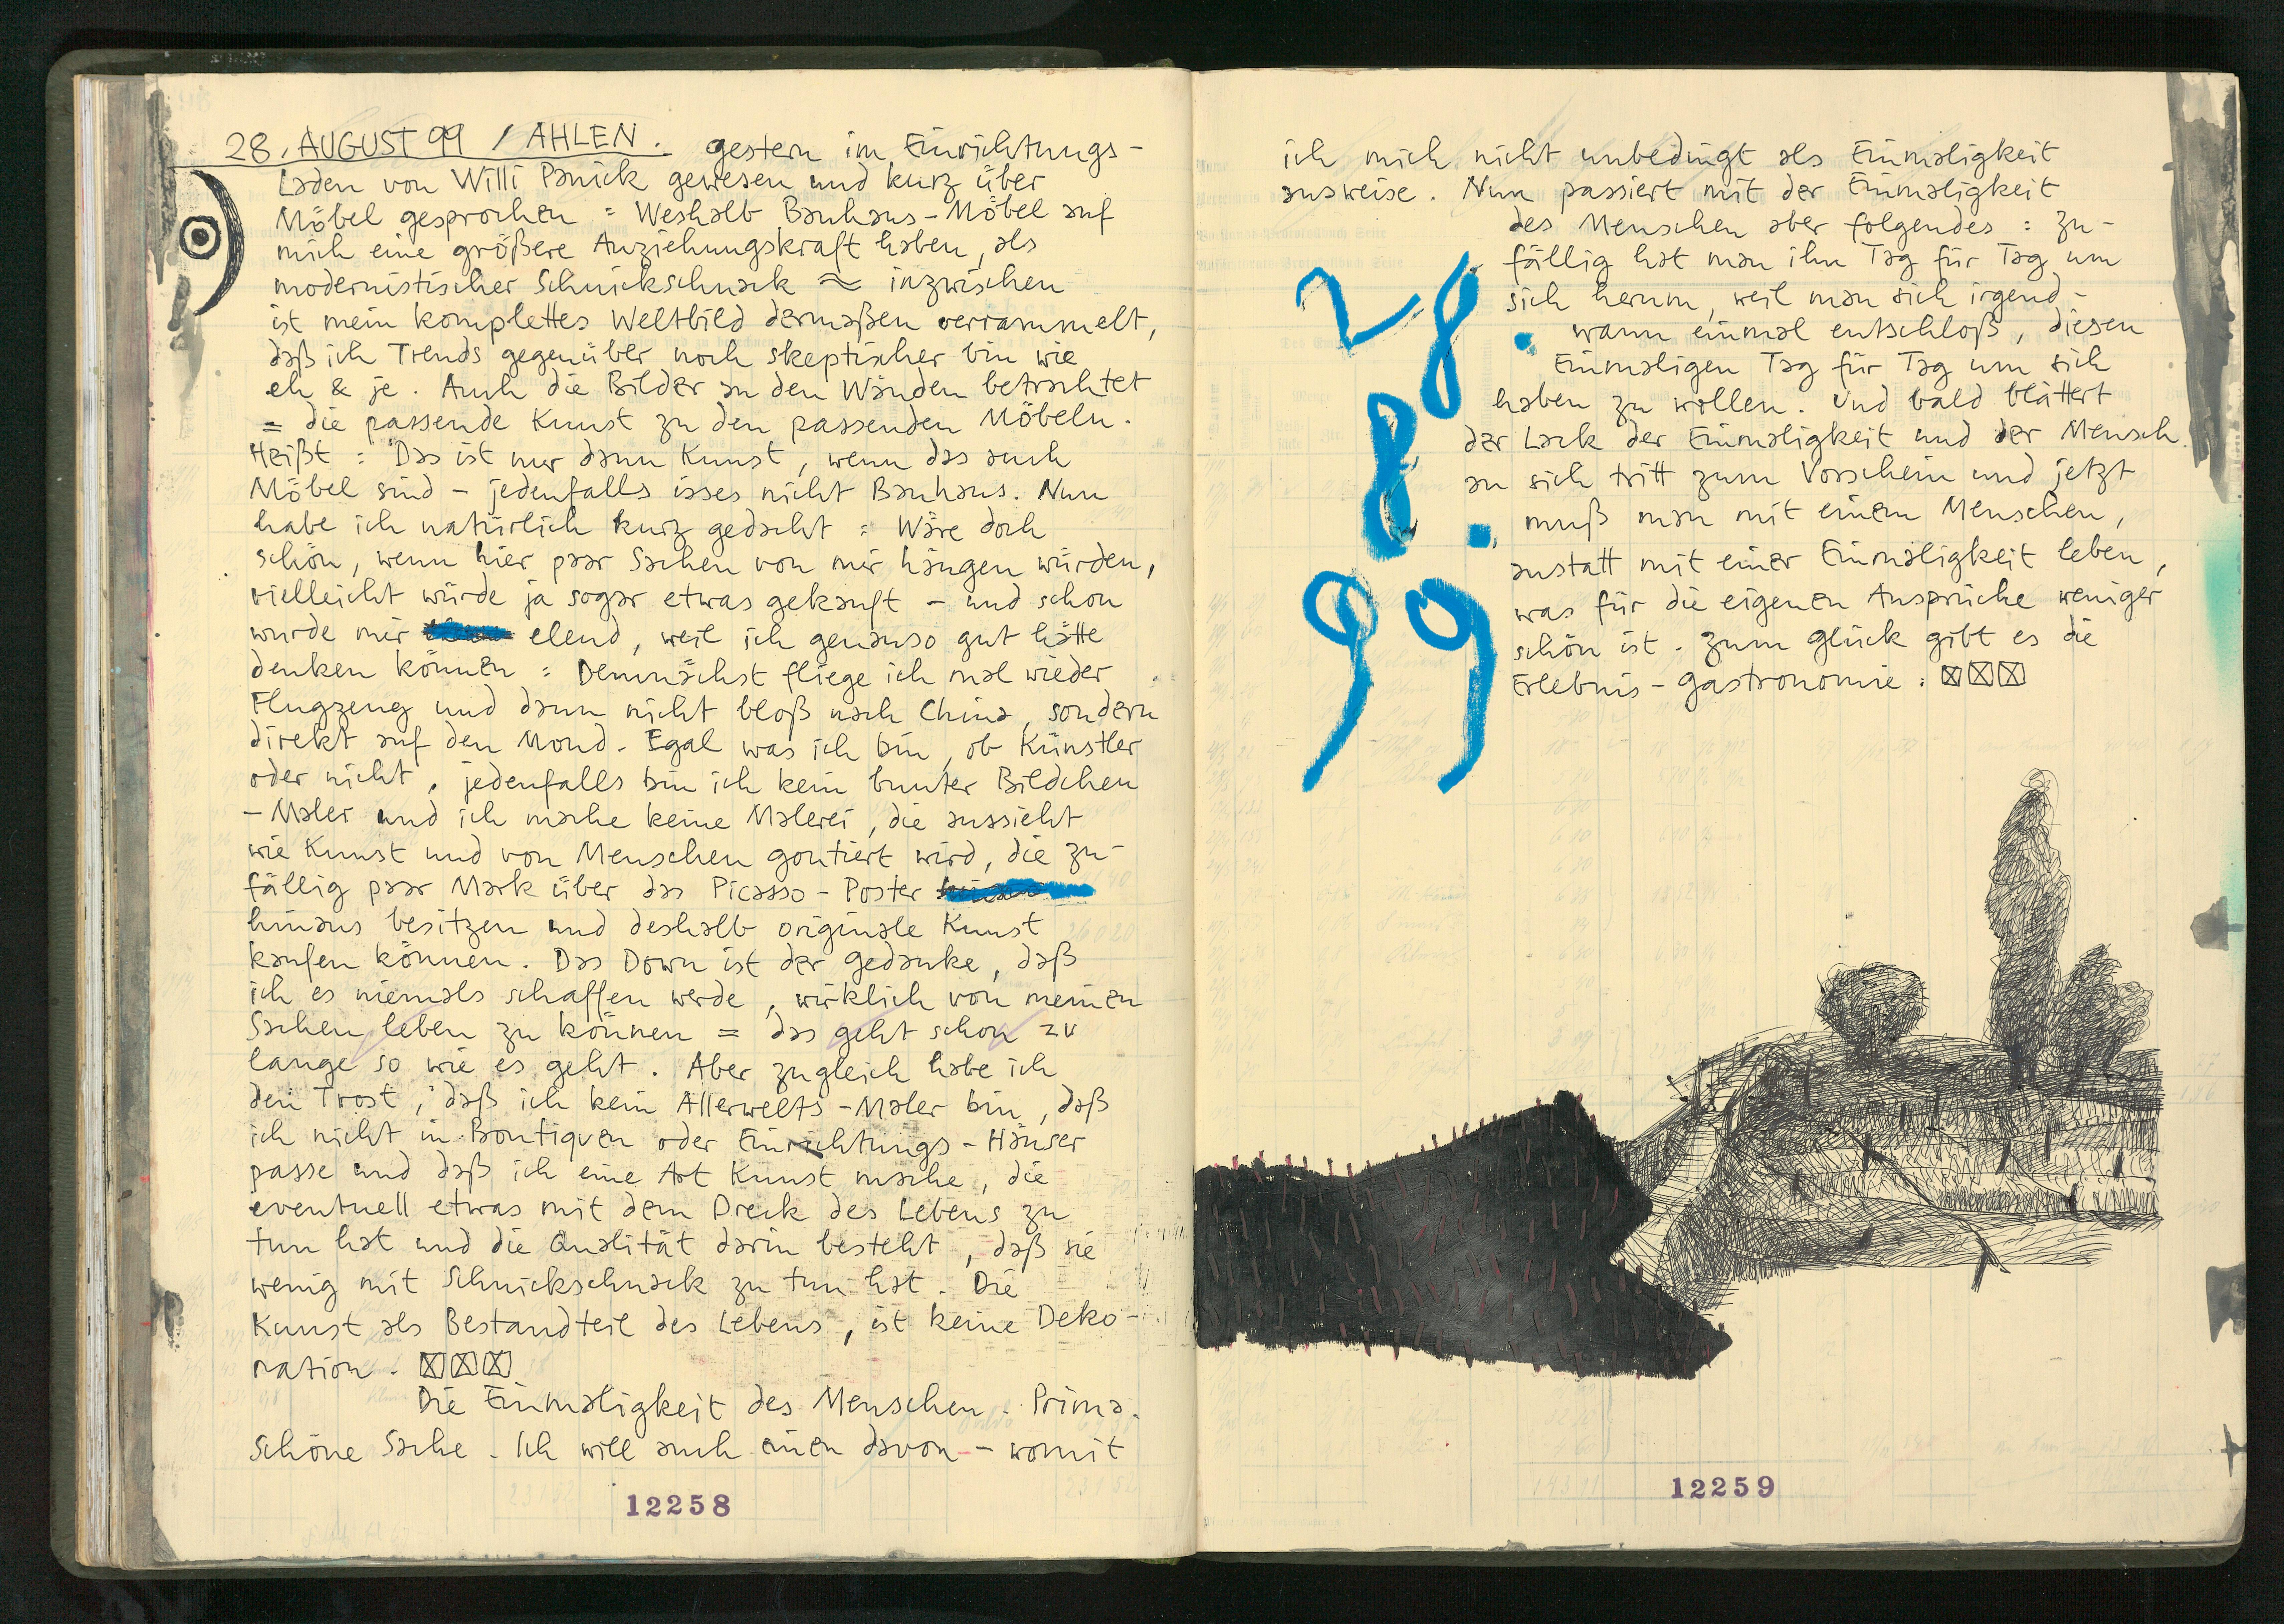 28. AUGUST 99 / AHLEN. gestern im Einrichtungs-
Laden von Willi Panick gewesen und kurz über
Möbel gesprochen = Weshalb Bauhaus-Möbel auf
mich eine größere Anziehungskraft haben, als
modernistischer Schnickschnack ≈ inzwischen
ist mein komplettes Weltbild dermaßen verrammelt,
daß ich Trends gegenüber noch skeptischer bin wie
eh & je. Auch die Bilder an den Wänden betrachtet
= die passende Kunst zu den passenden Möbeln.
Heißt = Das ist nur dann Kunst, wenn das auch
Möbel sind - jedenfalls isses nicht Bauhaus. Nun
habe ich natürlich kurz gedacht = Wäre doch
schön, wenn hier paar Sachen von mir hängen würden,
vielleicht würde ja sogar etwas gekauft - und schon
wurde mir elend, weil ich genauso gut hätte
denken können = Demnächst fliege ich mal wieder
Flugzeug und dann nicht bloß nach China, sondern
direkt auf den Mond. Egal was ich bin, ob Künstler
oder nicht, jedenfalls bin ich kein bunter Bildchen
-Maler und ich mache keine Malerei, die aussieht
wie Kunst und von Menschen goutiert wird, die zu-
fällig paar Mark über das Picasso-Poster
hinaus besitzen und deshalb originale Kunst
kaufen können. Das Down ist der Gedanke, daß
ich es niemals schaffen werde, wirklich von meinen
Sachen leben zu können = das geht schon zu
lange so wie es geht. Aber zugleich habe ich
den Trost, daß ich kein Allerwelts-Maler bin, daß
ich nicht in Boutiquen oder Einrichtungs-Häuser
passe und daß ich eine Art Kunst mache, die
eventuell etwas mit dem Dreck des Lebens zu
tun hat und die Qualität darin besteht, daß sie
wenig mit Schnickschnack zu tun hat. Die
Kunst als Bestandteil des Lebens, ist keine Deko-
ration. ☒☒☒
Die Einmaligkeit des Menschen. Prima.
Schöne Sache. Ich will auch einen davon - womit
12258
ich mich nicht unbedingt als Einmaligkeit
ausweise. Nun passiert mit der Einmaligkeit
des Menschen aber folgendes = zu-
fällig hat man ihn Tag für Tag um
sich herum, weil man sich irgend-
wann einmal entschloß, diesen
Einmaligen Tag für Tag um sich
haben zu wollen. Und bald blättert
der Lack der Einmaligkeit und der Mensch
an sich tritt zum Vorschein und jetzt
muß man mit einem Menschen,
anstatt mit einer Einmaligkeit leben,
was für die eigenen Ansprüche weniger
schön ist. Zum Glück gibt es die
Erlebnis-Gastronomie. ☒☒☒
28.
8.
99
12259